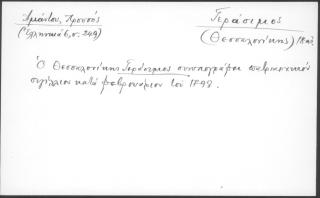 Ἀμάντου, Προυσός
(Ἑλληνικά 6, σ. 249)
Γεράσιμος
(Θεσσαλονίκης)
Ὁ Θεσσαλονίκης Γεράσιμος συνυπογράφει πατριαρχικόν
σιγίλλιον κατά φεβρουάριον τοῦ 1798.